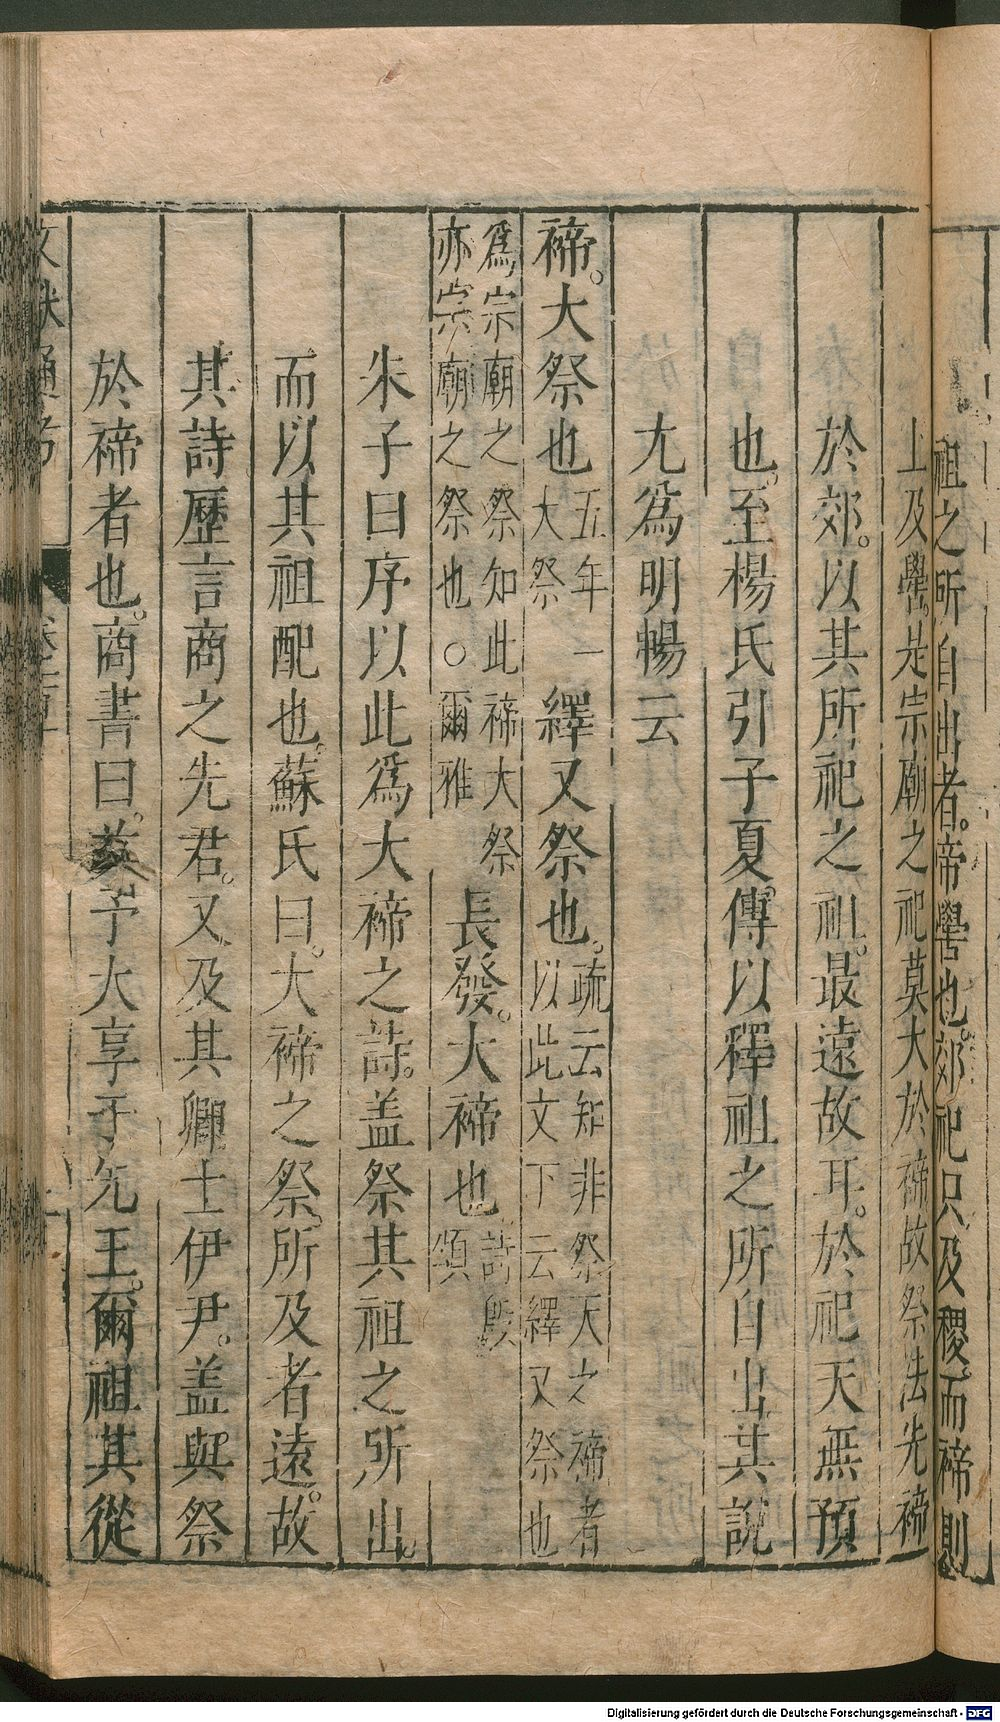 祖之所自出者。帝嚳也。郊祀只及稷。而禘則
上及嚳。是宗廟之祀莫大於禘故祭法先禘
於郊。以其所祀之祖。最遠故耳。於祀天無預
也。至楊氏引子夏傳以釋祖之所自出其說
尤為明暢云
禘。大祭也五年一大祭 繹又祭也。疏云知非祭天之禘者以此文下云繹又祭也
爲宗廟之祭知此禘大祭亦宗廟之祭也○爾雅 長發。大禘也詩殷頌
朱子曰序以此爲大禘之詩。盖祭其祖之所出。
而以其祖配也。蘇氏曰。大禘之祭。所及者遠。故
其詩歷言商之先君。又及其卿士伊尹。盖與祭
於禘者也。商書曰。茲予大享于先王。爾祖其從
文獻通考
Digitalisierung gefördert durch die Deutsche Forschungsgemeinschaft - DFG